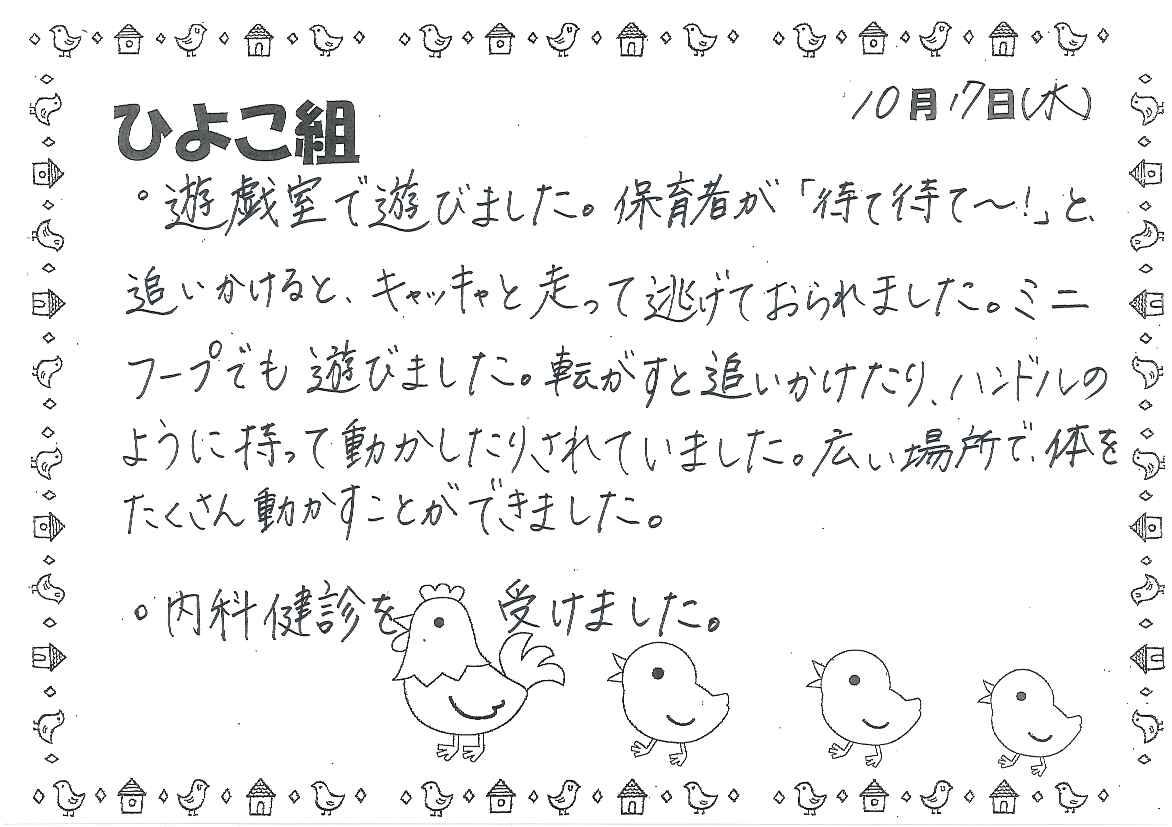 10月17日(水)
ひよこ組
°遊戯室で遊びました。保育者が「待て待て～!」と、
追いかけると、キャッキャと走って逃げておられました。ミニ
フープでも遊びました。転がすと追いかけたり、ハンドルの
ように持って動かしたりされていました。広い場所で、体を
たくさん動かすことができました。
°内科健診を受けました。